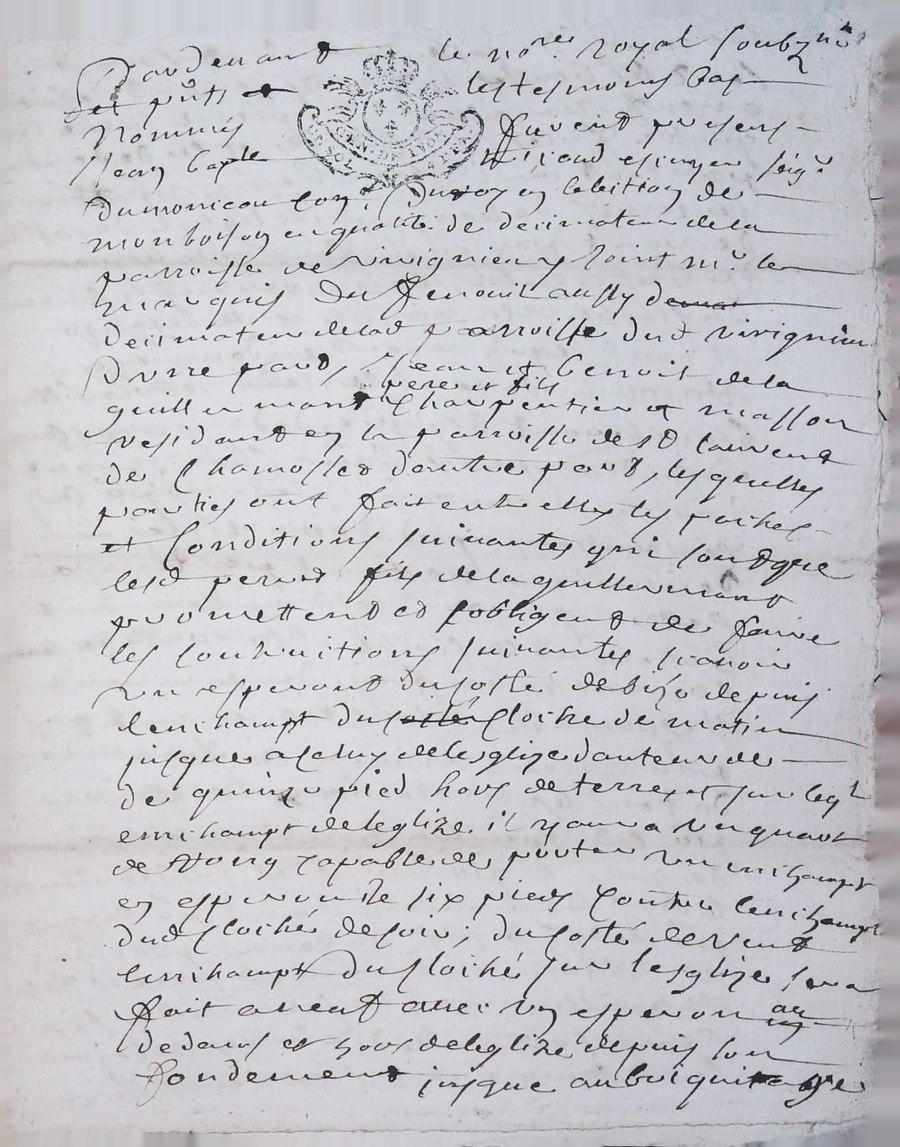 Pardevant le nore royal soubzné
et les tesmoins bas
nommés furent presens
Jean bapte escuyer seigr
du monceau de
monboison en qualité de decimateur de la
parroisse de Virignieu joint mr le
marquis du fenouil aussy
decimateur de lad parroisse dud virignieu
D'vne part, Jean et benoit de la
pere et fils
guillermant Charpentier et masson
residant en la parroisse de st laurent
de Chamosset d'autre part, lesquelles
parties ont fait entre elles les paches
et Conditions suivantes qui sont que
lesd pere et fils de la guillermant
promettent et s'obligent de faire
les constructions suivantes scavoir
vn esperont du costé de bize depuis
lenchampt du cloché de matin
jusque a celuy de lesglize d'auteur de
de quinze pied hors de terre et sur leql
enchampt de leglize il y aura vn quart
de rong capable de porter vn enchampt
en esperon de six pieds Contre lenchampt
dud cloché de soir; du costé de vent
lenchampt du cloché sur lesglize sera
fait avec vn esperon au
dedans et hors de leglize depuis son
fondement jusque au